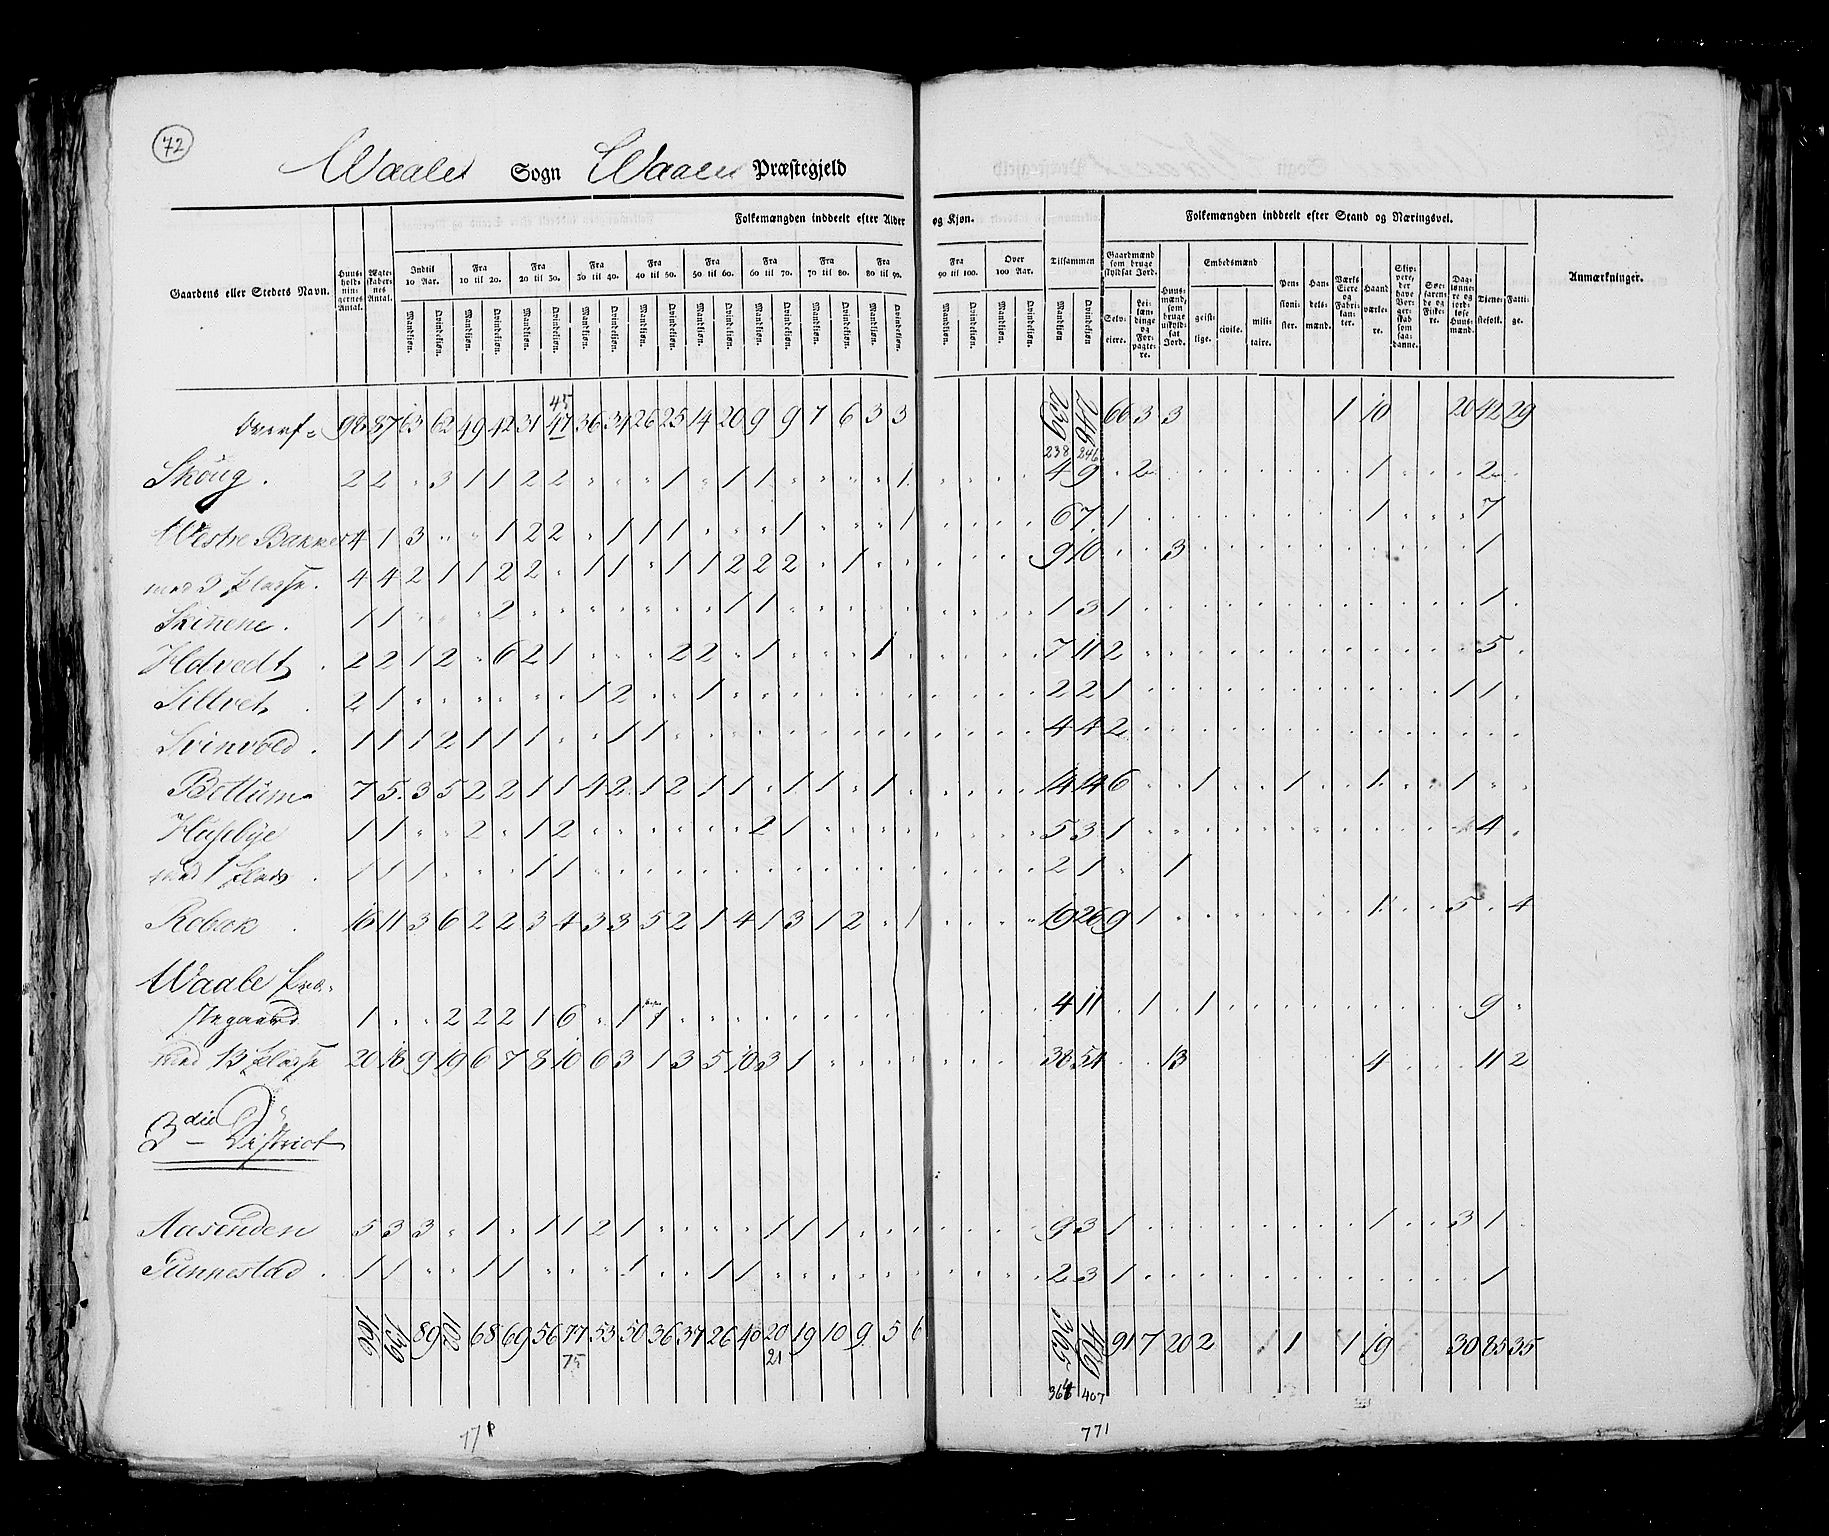 72
Waale Sogn Waale Præstegjeld
Folkemængden inddeelt efter Alder og Kjøn. Folkemængden inddeelt efter Stand og Næringsvei.
Gaardens eller Stedets Navn. Huusholdningernes Antal. Ægteskabernes Antal. Indtil 10 Aar. Fra 10 til 20. Fra 20 til 30. Fra 30 til 40. Fra 40 til 50. Fra 50 til 60. Fra 60 til 70. Fra 70 til 80. Fra 80 til 90. Fra 90 til 100. Over 100 Aar. Tilsammen Gaardmænd som bruge skyldsat Jord. Huusmænd, som bruge uskyldsat Jord. Embedsmænd Pensionister. Handelsmænd. Værks Eiere og Fabrikanter. Haandværkere. Skippere, der have Borgerskab som saadanne. Søefarende og Fiskere. Dagslønnere og jordløse Huusmænd. Tjenestefolk. Fattige. Anmærkninger.
Mandkjøn. Qvindekjøn. Mandkjøn. Qvindekjøn. Mandkjøn. Qvindekjøn. Mandkjøn. Qvindekjøn. Mandkjøn. Qvindekjøn. Mandkjøn. Qvindekjøn. Mandkjøn. Qvindekjøn. Mandkjøn. Qvindekjøn. Mandkjøn. Qvindekjøn. Mandkjøn. Qvindekjøn. Mandkjøn. Qvindekjøn. Mandkjøn Qvindekjøn Selveiere. Leilændinge og Forpagtere. geistlige. civile. militaire.
45
98 87 63 62 49 42 31 47 36 34 26 25 14 20 9 9 7 6 3 3 239 246 66 3 3 1 10 20 42 29
238 246
Skoug. 2 2 " 3 1 1 2 2 " " " 1 " 1 1 " " " " 1 4 9 " 2 1 2
Westre Bakke 4 1 3 " " 1 2 2 " 1 1 1 " " " 1 " " " 1 6 7 1 1 7
med 3 Pladse. 4 4 2 1 1 2 2 " 1 1 " 1 1 2 2 2 " 1 " " 9 10 3 1
Skinene. 1 1 " " " 2 " " " " " " " 1 1 " 1 3 1 1
Holvedt. 2 2 1 2 " 6 2 1 " " " 2 2 " 1 " " " 1 7 11 2 5
Siltvet. 2 1 " " " " " " 1 2 " " 1 2 2 1 1 1
Svinvold. 1 1 1 2 1 1 1 " " 1 1 4 4 2
Bettum 7 5 3 5 2 2 1 1 4 2 1 2 1 1 " 1 1 " 1 14 14 6 1 1 1 1
Husebye 1 1 " " 2 " 1 2 " " " " " " 2 1 5 3 1 4
med 1 Plads. 1 1 1 " " " 1 1 2 1 1
Robæk. 16 11 3 6 2 2 3 4 3 3 5 2 1 4 1 3 1 2 " 1 19 26 9 1 1 5 4
Waale Præ-
stegaard 1 " " 2 2 2 1 6 " 1 1 4 11 1 1 9
med 13 Pladse 20 18 9 19 6 7 8 10 6 3 1 3 5 10 3 1 38 54 13 4 11 2
3die District
Aasenden 5 3 3 " 1 " 1 1 2 1 " " " " 1 1 1 9 3 1 1 3 1
Gunnestad. 1 1 " " 1 1 " " " 1 " " 1 1 2 3 1 1
166 139 89 102 68 69 56 77 53 50 36 37 26 40 20 19 10 9 5 6 365 406 91 7 20 2 1 1 19 30 85 35
75 21 364 407
771 771